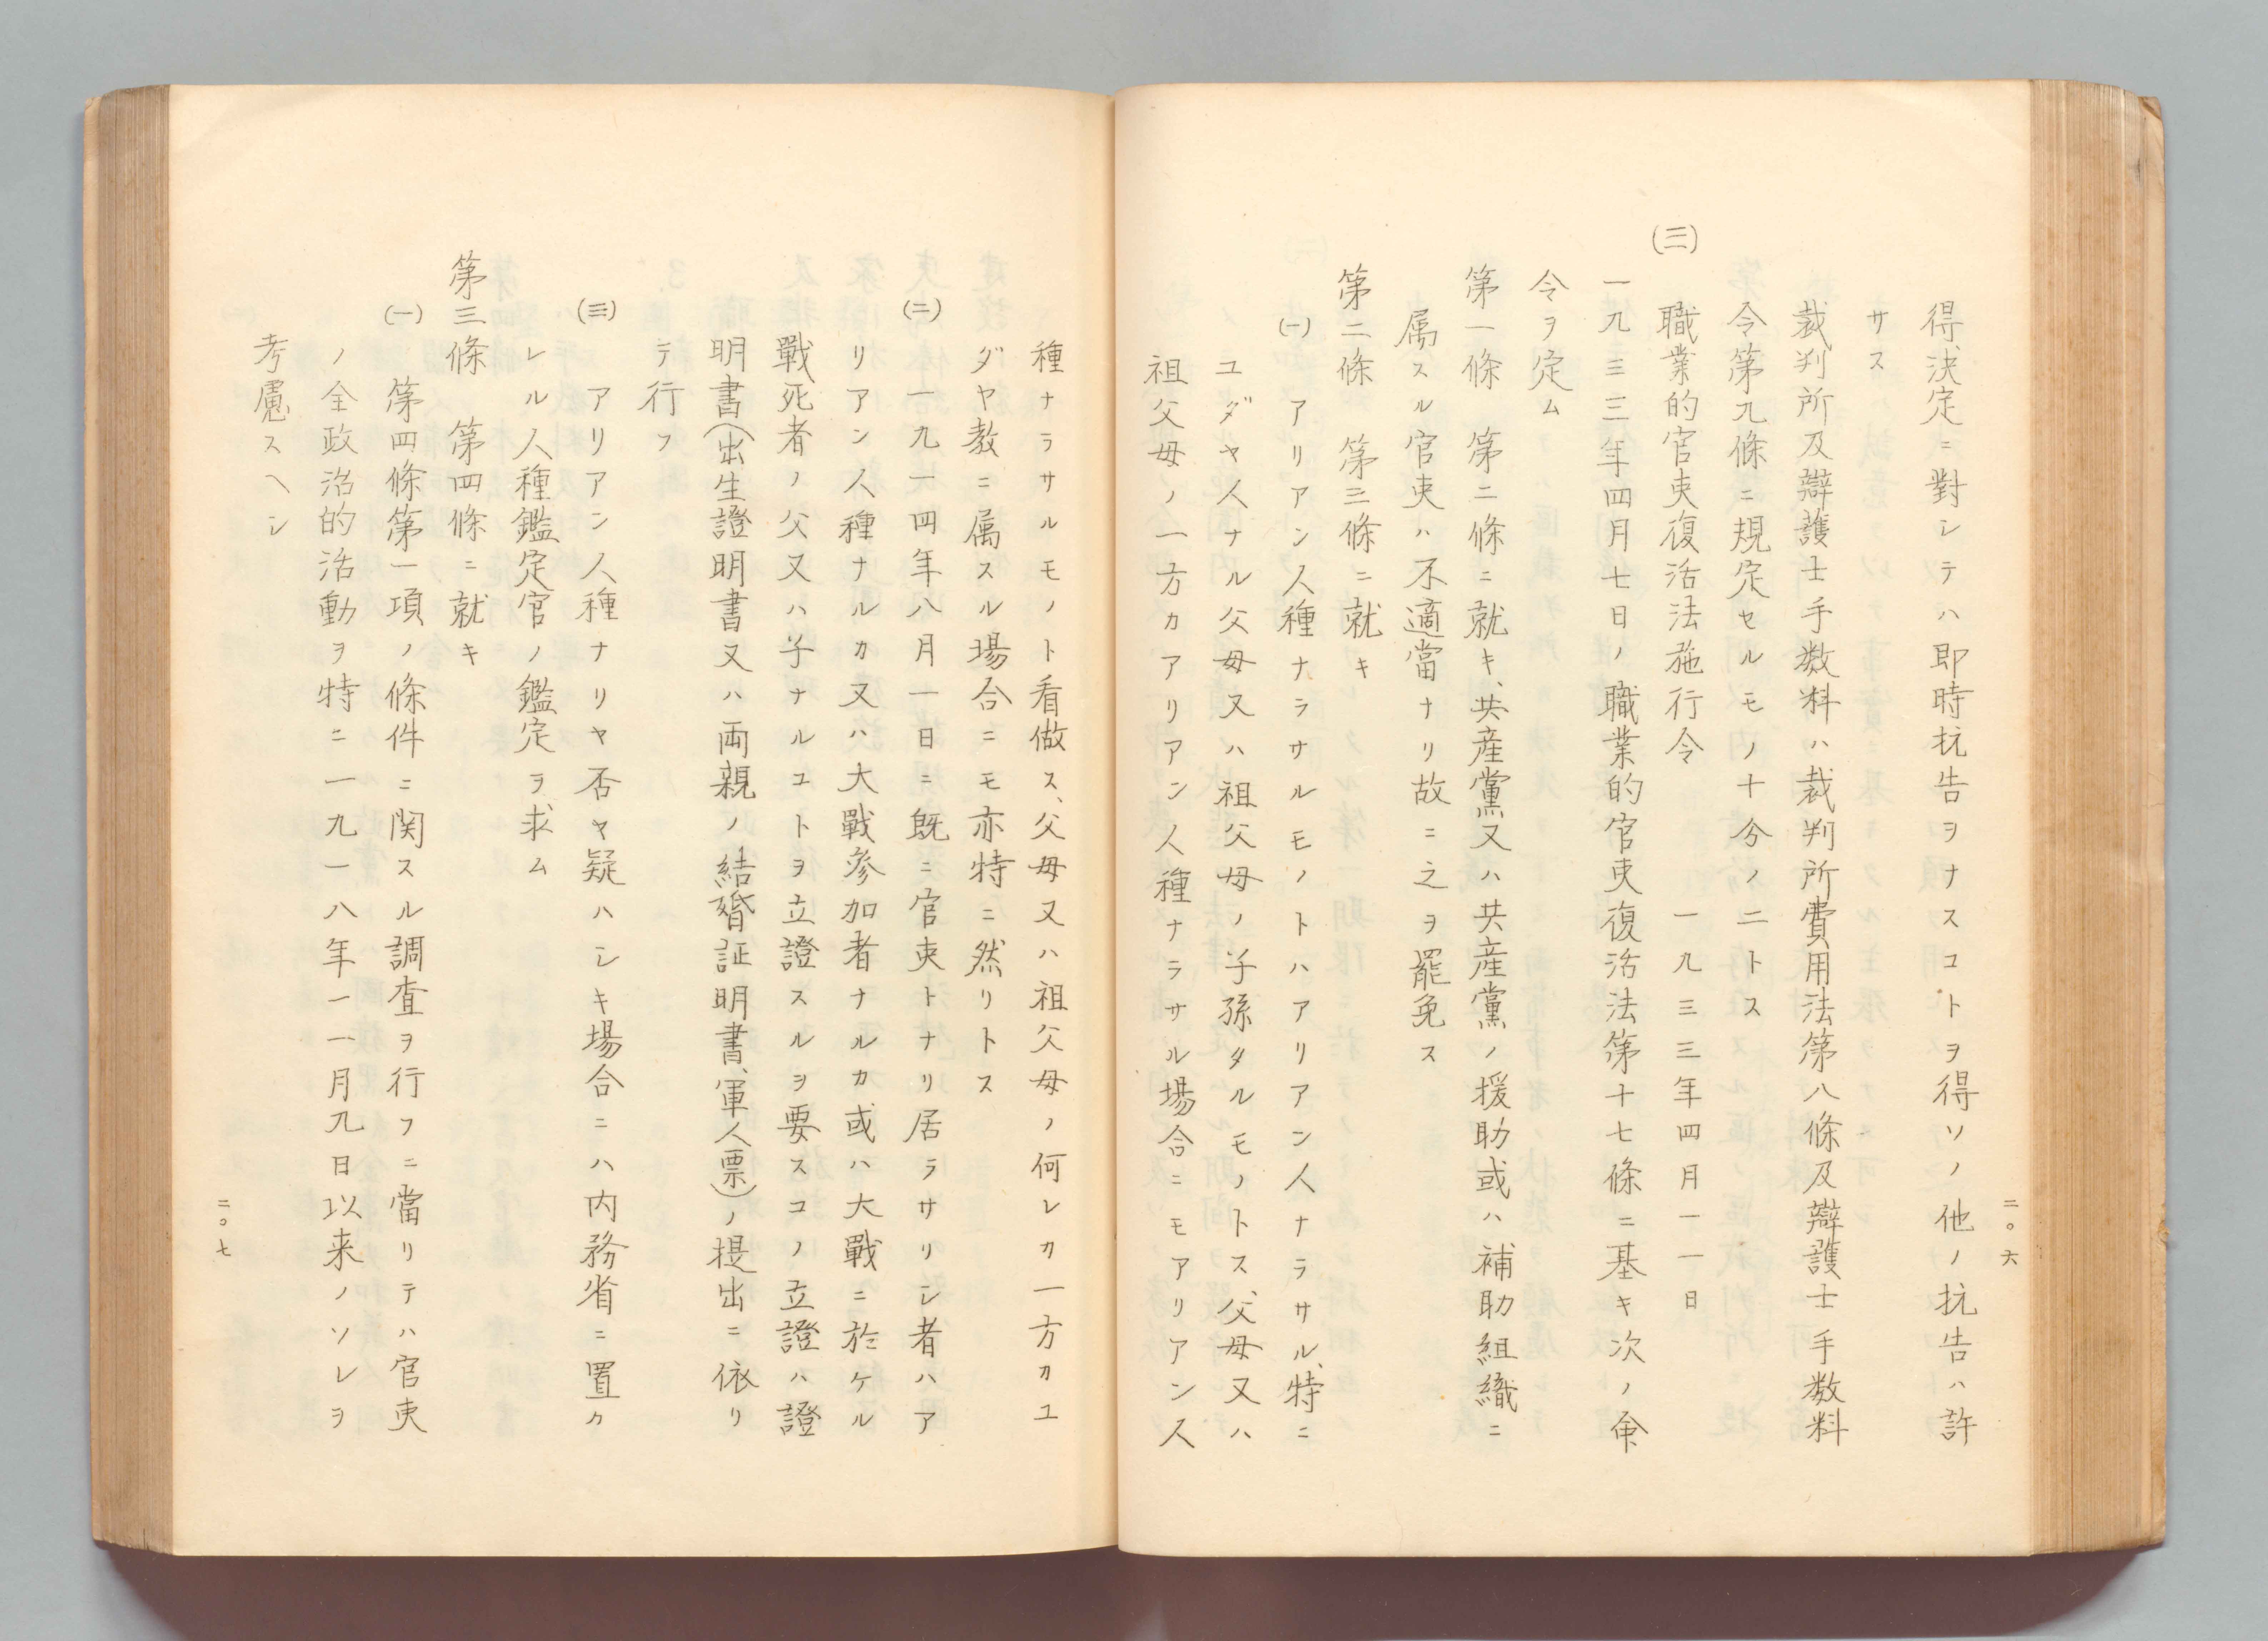 二〇六
得、決定ニ對シテハ即時抗告ヲナスコトヲ得ソノ他ノ抗告ハ許
サス
裁判所及辯護士手数料ハ裁判所費用法第八條及辯護士手数料
令第九條ニ規定セルモノ十分ノ二トス
(三)
職業的官吏復活法施行令　一九三三年四月一一日
一九三三年四月七日ノ職業的官吏復活法第十七條ニ基キ次ノ命
令ヲ定ム
第一條　第二條ニ就キ、共産黨又ハ共産黨ノ援助或ハ補助組織ニ
属スル官吏ハ不適當ナリ故ニ之ヲ罷免ス
第二條　第三條ニ就キ
(一)　アリアン人種ナラサルモノトハアリアン人ナラサル、特ニ
ユダヤ人ナル父母又ハ祖父母ノ子孫タルモノトス、父母又ハ
祖父母ノ一方カアリアン人種ナラサル場合ニモアリアン人
種ナラサルモノト看做ス、父母又ハ祖父母ノ何レカ一方カユ
ダヤ教ニ属スル場合ニモ亦特ニ然リトス
(二)　一九一四年八月一日ニ既ニ官吏トナリ居ラサリシ者ハア
リアン人種ナルカ又ハ大戰参加者ナルカ或ハ大戰ニ於ケル
戰死者ノ父又ハ子ナルコトヲ立證スルヲ要スコノ立證ハ證
明書(出生證明書又ハ両親ノ結婚証明書、軍人票)ノ提出ニ依リ
テ行フ
(三)　アリアン人種ナリヤ否ヤ疑ハシキ場合ニハ内務省ニ置カ
レル人種鑑定官ノ鑑定ヲ求ム
第三條　第四條ニ就キ
(一)　第四條第一項ノ條件ニ関スル調査ヲ行フニ當リテハ官吏
ノ全政治的活動ヲ特ニ一九一八年一一月九日以来ノソレヲ
考慮スヘシ
二〇七